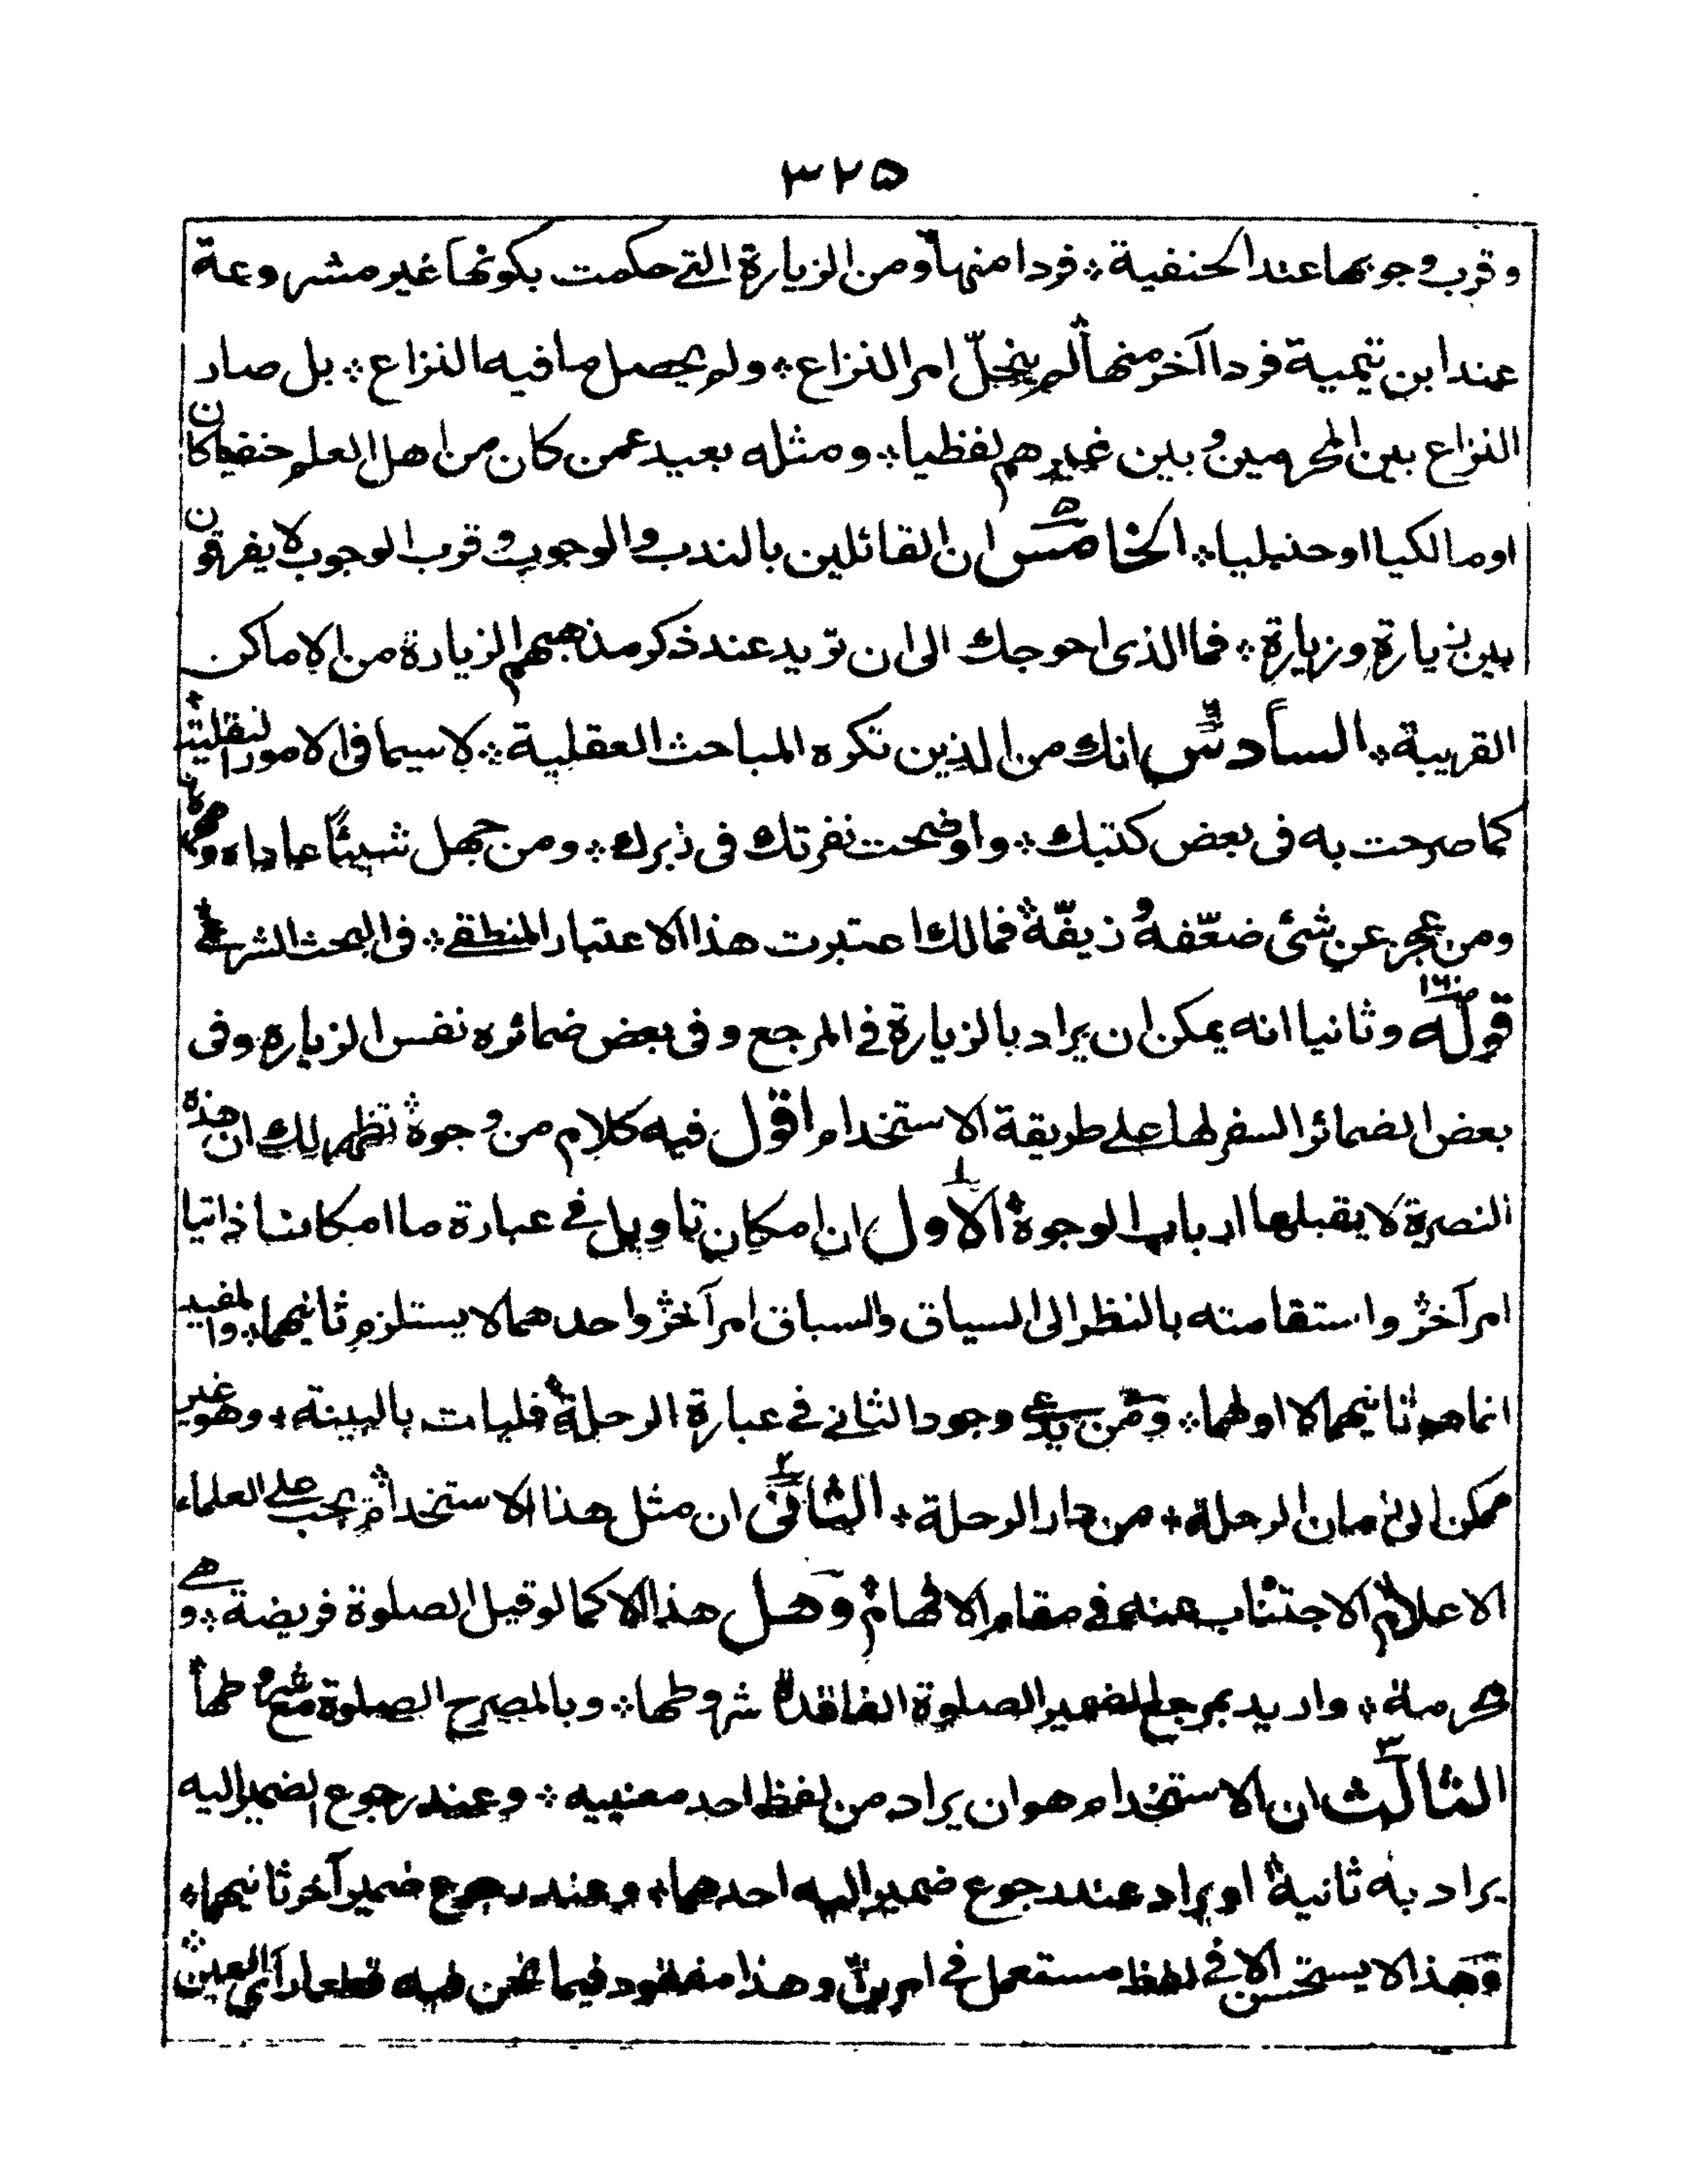 ٣٢٥
وقرب وجوبها عند الحنفية ؞ فردا منها ومن الزيارة التي حكمت بكونها غير مشروعة
عند ابن تيمية فردا آخر منها لم ينجلّ امر النزاع ؞ ولم يحصل ما فيه النزاع ؞ بل صار
النزاع بين المحرمين وبين غيرهم لفظيا ؞ ومثله بعيد عمن كان من اهل العلم حنفيا كان
او مالكيا او حنبليا ؞ الخامس ان القائلين بالندب والوجوب وقرب الوجوب لا يفرقون
بين زيارة وزيارة ؞ فما الذى احوجك الى ان تريد عند ذكر مذاهبهم الزيارة من الاماكن
القريبة ؞ السادس انك من الذين تكره المباحث العقلية ؞ لا سيما فى الامور النقلية
كما صرحت به فى بعض كتبك ؞ واوضحت نفرتك فى زبرك ؞ ومن جهل شيئًا عاداه
ومن عجز عن شئ ضعّفه وزيفّه فمالك اعتبرت هذا الاعتبار المنطقے ؞ فى البحث الشرعے
قوله وثانيا انه يمكن ان يراد بالزيارة في المرجع وفى بعض ضمائره نفس الزيارة وفى
بعض الضمائر السفر لها على طريقة الاستخدام اقول فيه كلام من وجوه تظهر لك ان هذه
النصرة لا يقبلها ارباب الوجوه الاول ان امكان تاويل في عبارة ما امكانا ذاتيا
امر آخر واستقامته بالنظر الى السياق والسباق امر آخر واحدهما لا يستلزم ثانيهما ؞ والمفيد
انما هو ثانيهما لا اولهما ؞ ومن يدعے وجود الثاني في عبارة الرحلة فليات بالبينة ؞ وهو غير
ممكن الى زمان الرحلة ؞ من دار الرحلة ؞ الثانى ان مثل هذا الاستخدام يجب على العلماء
الاعلام الاجتناب عنه في مقام الافهام وهل هذا الا كما لو قيل الصلوة فريضة ؞ وهے
محرمة ؞ واريد بمرجع الضمير الصلوة الفاقدة شروطها ؞ وبالمصرح الصلوة مع شروطها
الثالث ان الاستخدام هو ان يراد من لفظ احد معنييه ؞ وعند رجوع الضمير اليه
يراد به ثانية او يراد عند رجوع ضمير اليه احدهما ؞ وعند رجوع ضمير آخر ثانيهما ؞
وهذا لا يستحسن الا في لفظ مستعمل في امرين وهذا مفقود فيما نحن فيه قطعا رآى العين